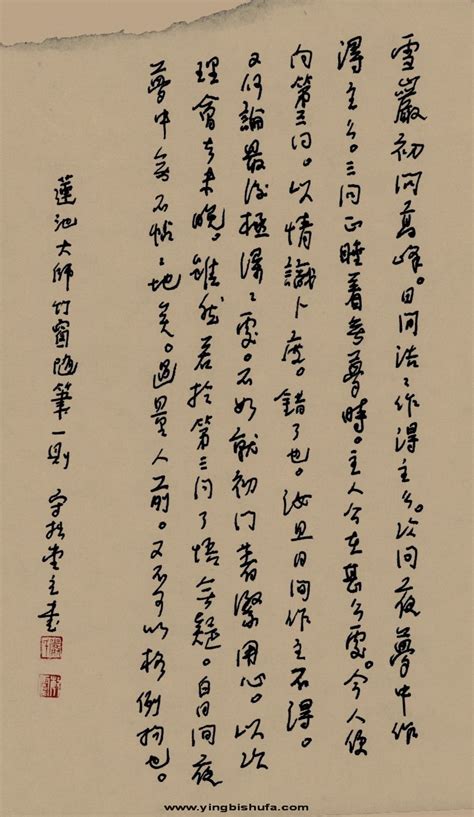 雪巖初問高峰。日間浩々作得主么。次問夜夢中作
得主么。三問正睡着無夢時。主人公在甚么處。今人便
向第三問。以情識卜度。錯了也。汝且日間作主不得。
又何論最後極深々處。不如就初門著緊用心。以次
理會去未晚。雖然若於第三問了悟無疑。白日間夜
夢中無不帖々地矣。過量人前。又不可以格例拘也。
蓮池大師竹窗隨筆一則 守拙堂主書
www.yingbishufa.com